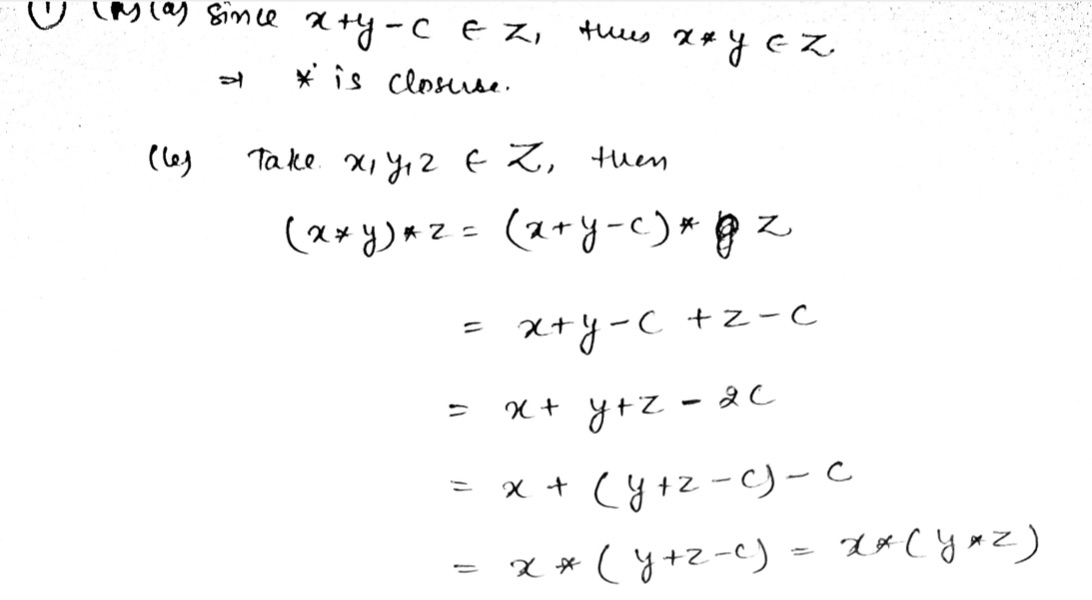 ① (a) Since x+y-c ∈ Z, thus x*y ∈ Z
⇒ * is closure.
(b) Take x, y, z ∈ Z, then
(x*y)*z = (x+y-c)* z
= x+y-c +z-c
= x+ y+z - 2c
= x + (y+z-c)-c
= x * (y+z-c) = x*(y*z)